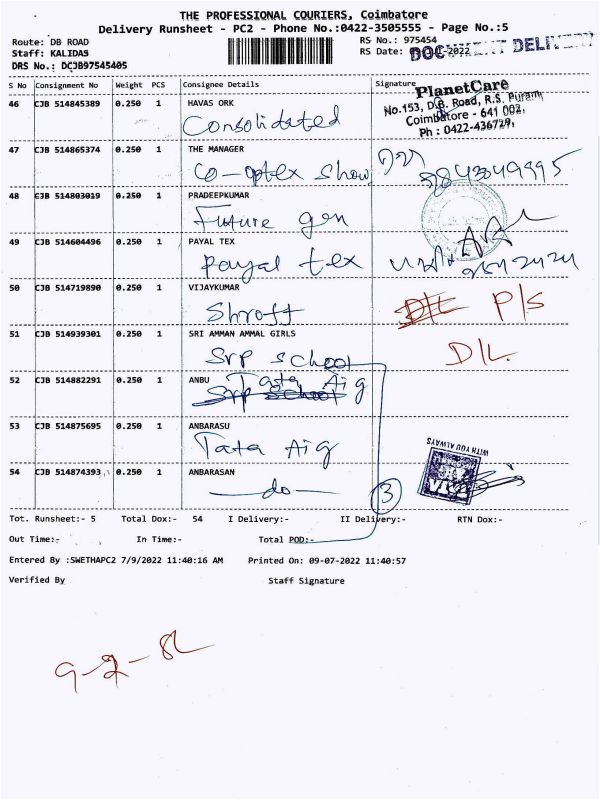 THE PROFESSIONAL COURIERS, Coimbatore
Delivery Runsheet - PC2 - Phone No.:0422-3505555 - Page No.:5
Route: DB ROAD
Staff: KALIDAS
DRS No.: DCJB97545405
RS No.: 975454
RS Date: -2022
DOCUMENT DELIVERY
S No Consignment No Weight PCS Consignee Details Signature
PlanetCare
No.153, D.B. Road, R.S. Puram,
Coimbatore - 641 002.
Ph : 0422-436729,
46 CJB 514845389 0.250 1 HAVAS ORK
Consolidated
47 CJB 514865374 0.250 1 THE MANAGER
Co-optex Show
48 CJB 514803019 0.250 1 PRADEEPKUMAR
Future gen
49 CJB 514604496 0.250 1 PAYAL TEX
Payal tex
50 CJB 514719890 0.250 1 VIJAYKUMAR
Shroff D/L P/S
51 CJB 514939301 0.250 1 SRI AMMAN AMMAL GIRLS
Srp school D/L.
52 CJB 514882291 0.250 1 ANBU
Tata Aig
Srp school
53 CJB 514875695 0.250 1 ANBARASU
Tata Aig
WITH YOU ALWAYS
54 CJB 514874393 0.250 1 ANBARASAN
-do- 3
Tot. Runsheet:- 5 Total Dox:- 54 I Delivery:- II Delivery:- RTN Dox:-
Out Time:- In Time:- Total POD:-
Entered By :SWETHAPC2 7/9/2022 11:40:16 AM Printed On: 09-07-2022 11:40:57
Verified By Staff Signature